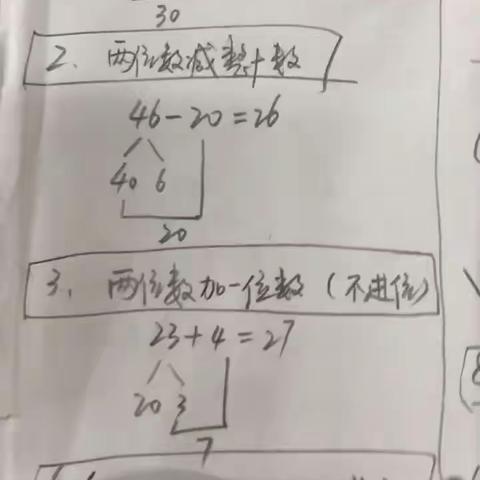 30
2、两位数减整十数
46-20=26
40 6
20
3、两位数加一位数(不进位)
23+4=27
20 3
7